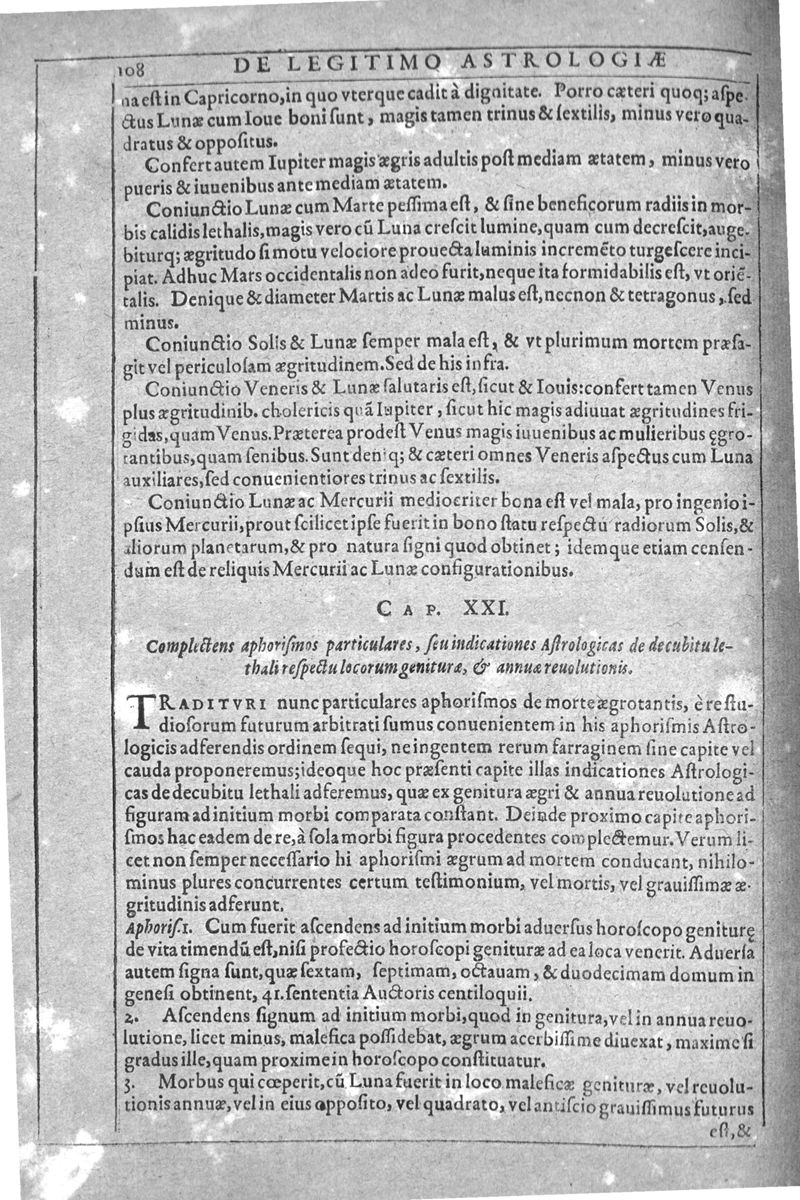 108 DE LEGITIMO ASTROLOGIÆ
na est in Capricorno, in quo vterque cadit à dignitate. Porro cæteri quoq; aspe-
ctus Lunæ cum Ioue boni sunt, magis tamen trinus & sextilis, minus vero qua-
dratus & oppositus.
Confert autem Iupiter magis ægris adultis post mediam ætatem, minus vero
pueris & iuuenibus ante mediam ætatem.
Coniunctio Lunæ cum Marte pessima est, & sine beneficorum radiis in mor-
bis calidis lethalis, magis vero cũ Luna crescit lumine, quam cum decrescit, auge-
biturq; ægritudo si motu velociore prouecta luminis incremẽto turgescere inci-
piat. Adhuc Mars occidentalis non adeo furit, neque ita formidabilis est, vt oriẽ-
talis. Denique & diameter Martis ac Lunæ malus est, necnon & tetragonus, sed
minus.
Coniunctio Solis & Lunæ semper mala est, & vt plurimum mortem præsa-
git vel periculosam ægritudinem. Sed de his infra.
Coniunctio Veneris & Lunæ salutaris est, sicut & Iouis: confert tamen Venus
plus ægritudinib. cholericis quã Iupiter, sicut hic magis adiuuat ægritudines fri-
gidas, quam Venus. Præterea prodest Venus magis iuuenibus ac mulieribus ęgro-
tantibus, quam senibus. Sunt deniq; & cæteri omnes Veneris aspectus cum Luna
auxiliares, sed conuenientiores trinus ac sextilis.
Coniunctio Lunæ ac Mercurii mediocriter bona est vel mala, pro ingenio i-
psius Mercurii, prout scilicet ipse fuerit in bono statu respectu radiorum Solis, &
aliorum planetarum, & pro natura signi quod obtinet; idemque etiam censen-
dum est de reliquis Mercurii ac Lunæ configurationibus.
CAP. XXI.
Complectens aphorismos particulares, seu indicationes Astrologicas de decubitu le-
thali respectu locorum genituræ, & annuæ reuolutionis.
TRADITVRI nunc particulares aphorismos de morte ægrotantis, è re stu-
diosorum futurum arbitrati sumus conuenientem in his aphorismis Astro-
logicis adferendis ordinem sequi, ne ingentem rerum farraginem sine capite vel
cauda proponeremus; ideoque hoc præsenti capite illas indicationes Astrologi-
cas de decubitu lethali adferemus, quæ ex genitura ægri & annua reuolutione ad
figuram ad initium morbi comparata constant. Deinde proximo capite aphori-
smos hac eadem de re, à sola morbi figura procedentes complectemur. Verum li-
cet non semper necessario hi aphorismi ægrum ad mortem conducant, nihilo-
minus plures concurrentes certum testimonium, vel mortis, vel grauissimæ æ-
gritudinis adferunt.
Aphoris. 1. Cum fuerit ascendens ad initium morbi aduersus horoscopo geniturę
de vita timendũ est, nisi profectio horoscopi genituræ ad ea loca venerit. Aduersa
autem signa sunt, quæ sextam, septimam, octauam, & duodecimam domum in
genesi obtinent, 41. sententia Auctoris centiloquii.
2. Ascendens signum ad initium morbi, quod in genitura, vel in annua reuo-
lutione, licet minus, malefica possidebat, ægrum acerbissime diuexat, maxime si
gradus ille, quam proxime in horoscopo constituatur.
3. Morbus qui cœperit, cũ Luna fuerit in loco maleficæ genituræ, vel reuolu-
tionis annuæ, vel in eius opposito, vel quadrato, vel antiscio grauissimus futurus
est, &